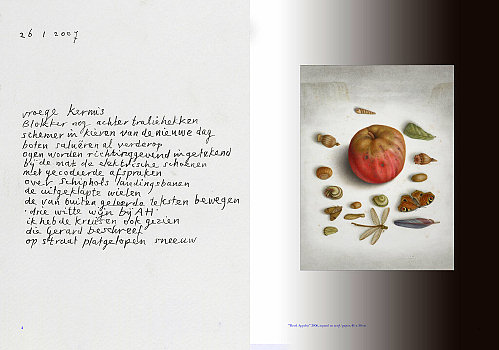 26 1 2007
vroege kermis
Blokker nog achter traliehekken
schemer in kieren van de nieuwe dag
boten salueren al verderop
ogen worden richtinggevend ingetekend
bij de mat de elektrische schoenen
met gecodeerde afspraken
over Schiphols landingsbanen
de uitgeklapte wielen
de van buiten geleerde teksten bewegen
'drie witte wijn bij AH'
ik heb de kreusen ook gezien
die Gerard beschreef
op straat platgelopen sneeuw
4